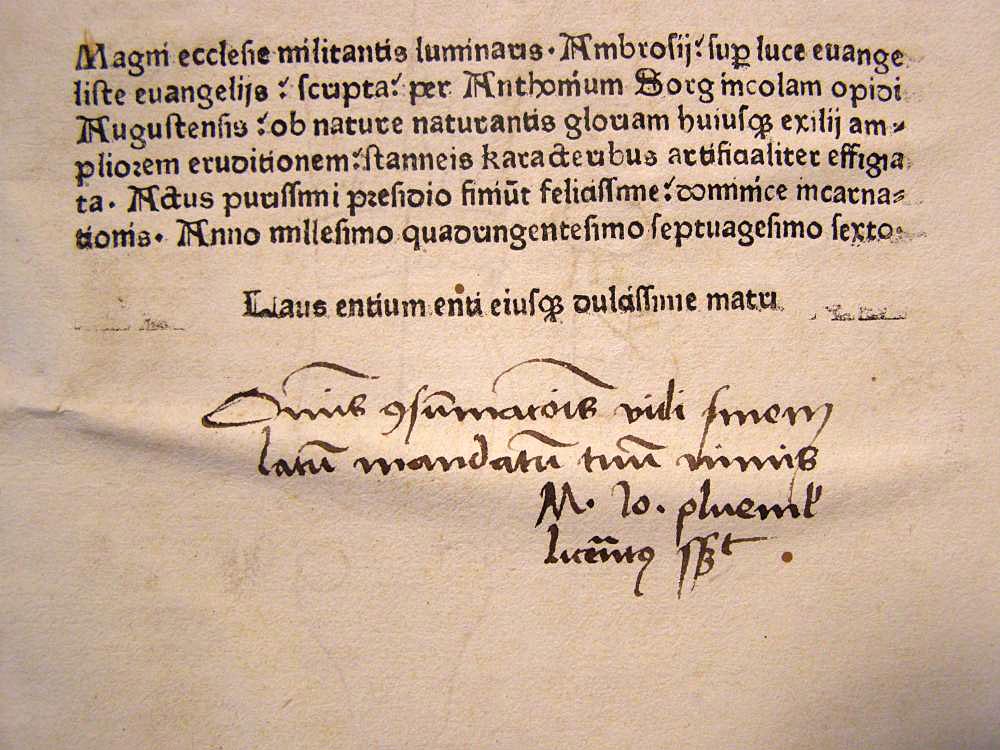 Magni ecclesie militantis luminaris. Ambrosij: sup luce euange
liste euangelijs: scripta: per Anthonium Sorg incolam opidi
Augustensis: ob nature naturantis gloriam huiusqꝫ exilij am-
pliorem eruditionem: stanneis karacteribus artificialiter effigia
ta. Actus purissimi presidio finiūt felicissime: dominice incarna-
tionis. Anno millesimo quadringentesimo septuagesimo sexto.
Laus entium enti eiusqꝫ dulcissime matri
Om̄is ꝯsūmatōis vidi finem
latū mandatū tuū nimis
M. Jo.